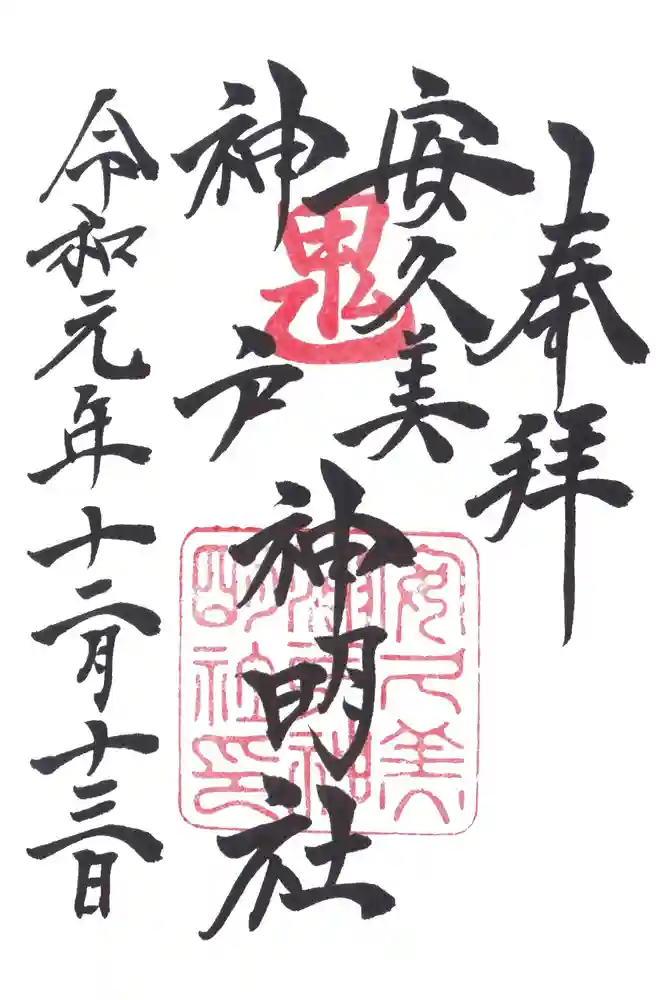 奉拝
安久美
神戸
神明社
令和元年十二月十三日
鬼
安久美
神戸神
明社印